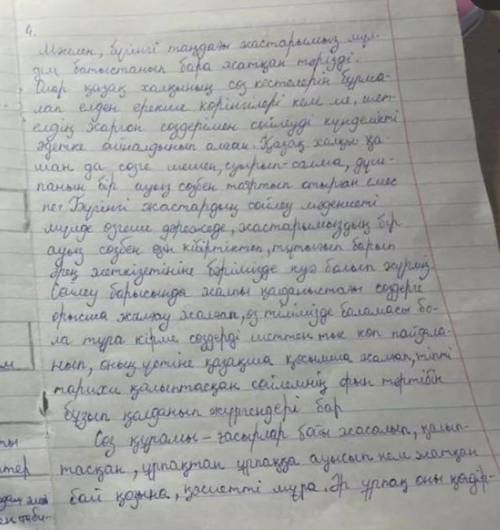 4.
Мәселен, бүгінгі таңдағы жастарымыз мүл-
дім батыстанып бара жатқан тәрізді.
Олар қазақ халқының сөз кестелерін бұрма-
лап елден ерекше көрінгілері келе ме, шет
елдің жаргон сөздерімен сөйлеуді күнделікті
әдетке айналдырып алған. Қазақ халқы қа-
шан да сөзге шешен, суырып-салма, дұш-
панын бір ауыз сөзбен тоқтатып отырған емес
пе? Бүгінгі жастардың сөйлеу мәдениеті
мүлде өзгеше дәрежеде, жастарымыздың бір
ауыз сөзбен өзін кібіртіктеп, тұтығып барып
әрең жеткізетініне бәріміз де куә болып жүрміз.
Сөйлеу барысында жалпы қолданыстағы сөздерге
орысша жалғау жалғап, өз тілімізде баламасы бо-
ла тұра кірме сөздерді шеттен тыс көп пайдала-
нып, оның үстіне қазақша қосымша жалғап, тіпті
тарихи қалыптасқан сөйлемнің орын тәртібін
бұзып қолданып жүргендері бар.
Сөз құрамы – ғасырлар бойы жасалып, қалып-
тасқан, ұрпақтан ұрпаққа ауысып келе жатқан
бай қазына, қасиетті мұра. Әр ұрпақ оны қадір-